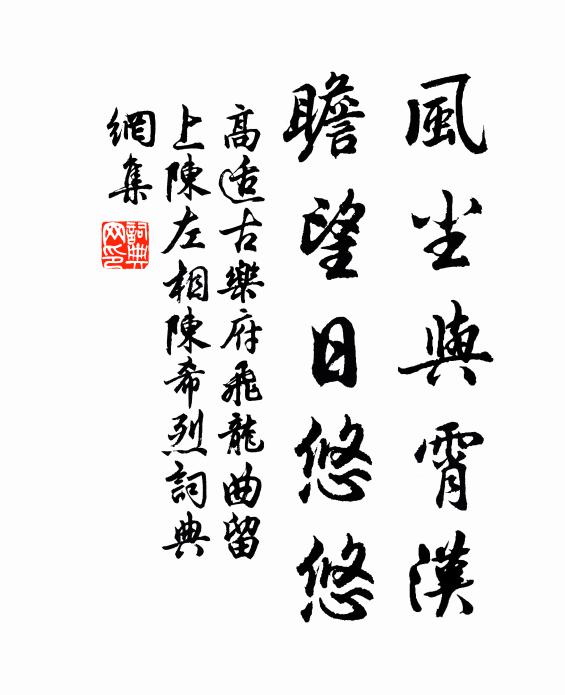 風尘與霄漢
瞻望日悠悠
高适古樂府飛龍曲留
上陳左相陳希烈詞典
網集
詞典
网印